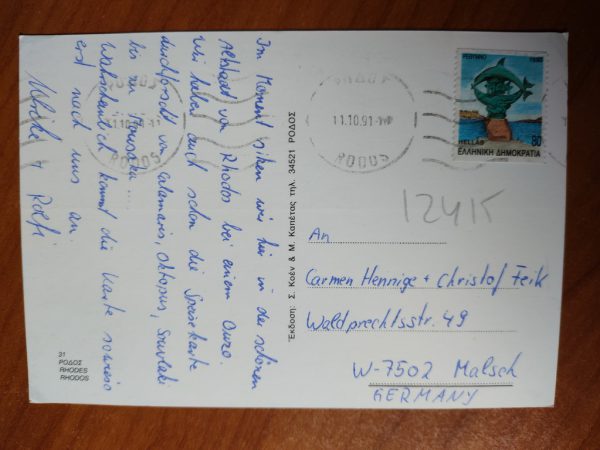 Im Moment sitzen wir hier in der schönen
Altstadt von Rhodos bei einem Ouzo.
Wir haben auch schon die Speisekarte
durchforscht von Calamaris, Oktopus, Souvlaki
bis zu Mousaka....
Wahrscheinlich kommt die Karte sowieso
erst nach uns an.
Ulrike + Ralfi
31
ΡΟΔΟΣ
RHODES
RHODOS
Έκδοση: Σ. Κοέν & Μ. Καπέτας τηλ. 34521 ΡΟΔΟΣ
11.10.91
RODOS
11.10.91
RODOS
ΡΕΘΥΜΝΟ
HELLAS 80
ΕΛΛΗΝΙΚΗ ΔΗΜΟΚΡΑΤΙΑ
124K
An
Carmen Hennige + Christof Feik
Waldprechtsstr. 49
W-7502 Malsch
GERMANY